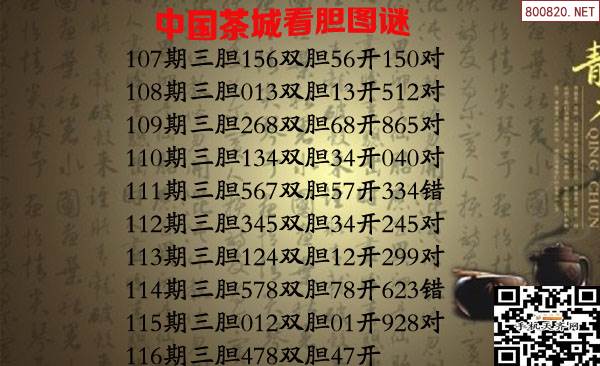 中国茶城看胆图谜
800820.NET
107期三胆156双胆56开150对
108期三胆013双胆13开512对
109期三胆268双胆68开865对
110期三胆134双胆34开040对
111期三胆567双胆57开334错
112期三胆345双胆34开245对
113期三胆124双胆12开299对
114期三胆578双胆78开623错
115期三胆012双胆01开928对
116期三胆478双胆47开
QING CHUN